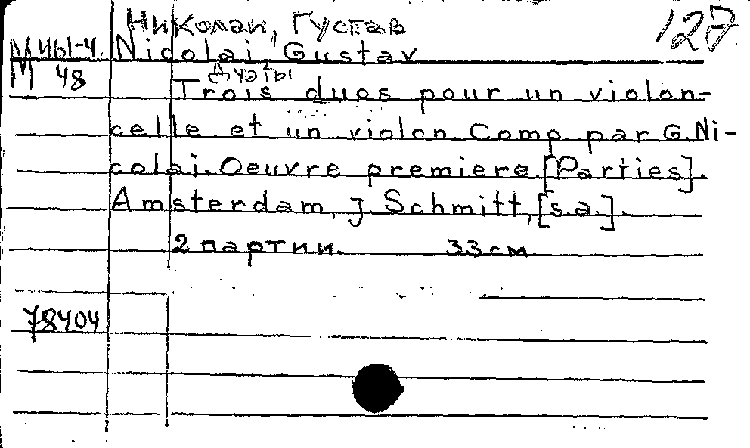 Николаи, Густав
127
М ЧЫ-Ч. Nicolai Gustav
М 48 Дуэты
Trois duos pour un violon-
celle et un violon Comp par G. Ni-
colai. Oeuvre premiere [Parties].
Amsterdam, J Schmitt, [s.a.].
2 партии. 33 см
78404